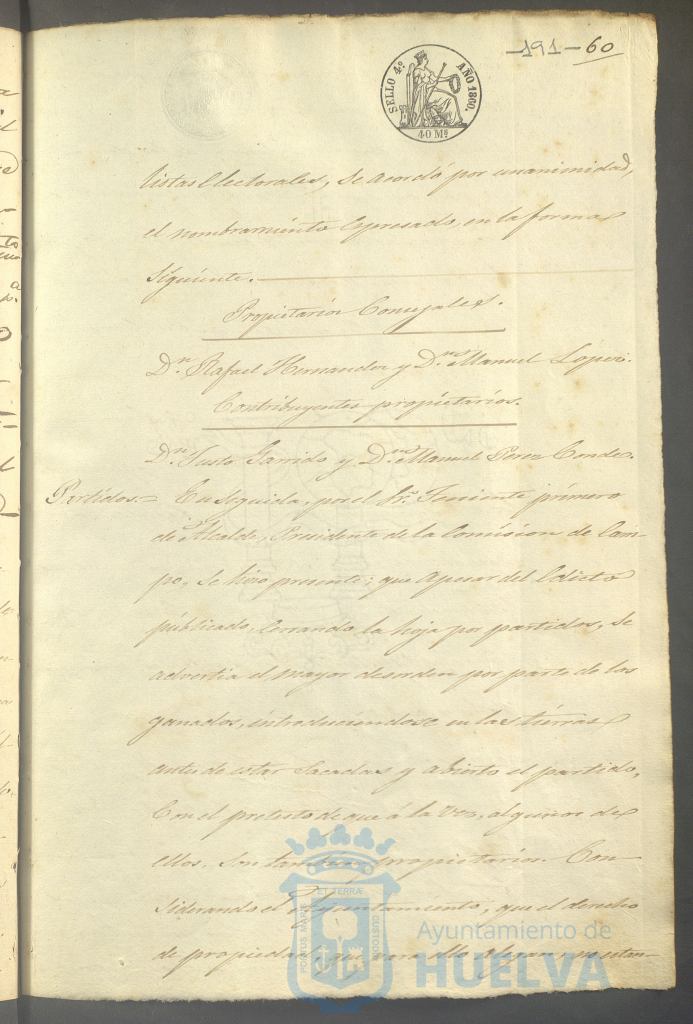 -191- 60
SELLO 4º AÑO 1860.
40 Mˢ
listas Electorales, se acordó por unanimidad,
el nombramiento espresado, en la forma
siguiente.
Propietarios Concejales.
Dⁿ. Rafael Hernandez y Dⁿ. Manuel Lopez.
Contribuyentes propietarios.
Dⁿ. Justo Garrido y Dⁿ. Manuel Perez Conde.
Partidos.= En seguida, por el Sr. Teniente primero
de Alcalde, Presidente de la Comision de Cam-
po, se hizo presente; que apesar del Edicto
publicado, cerrando la hoja por partidos, se
advertia el mayor desorden por parte de los
ganados, introduciendose en las tierras
antes de estar sacadas y abierto el partido,
con el pretesto de que á la vez, algunos de
ellos, son tambien propietarios. Con-
siderando el Ayuntamiento, que el derecho
de propiedad, que para ello alegan, no estan-
PORTUS MARIS ET TERRÆ CUSTODIA
Ayuntamiento de
HUELVA